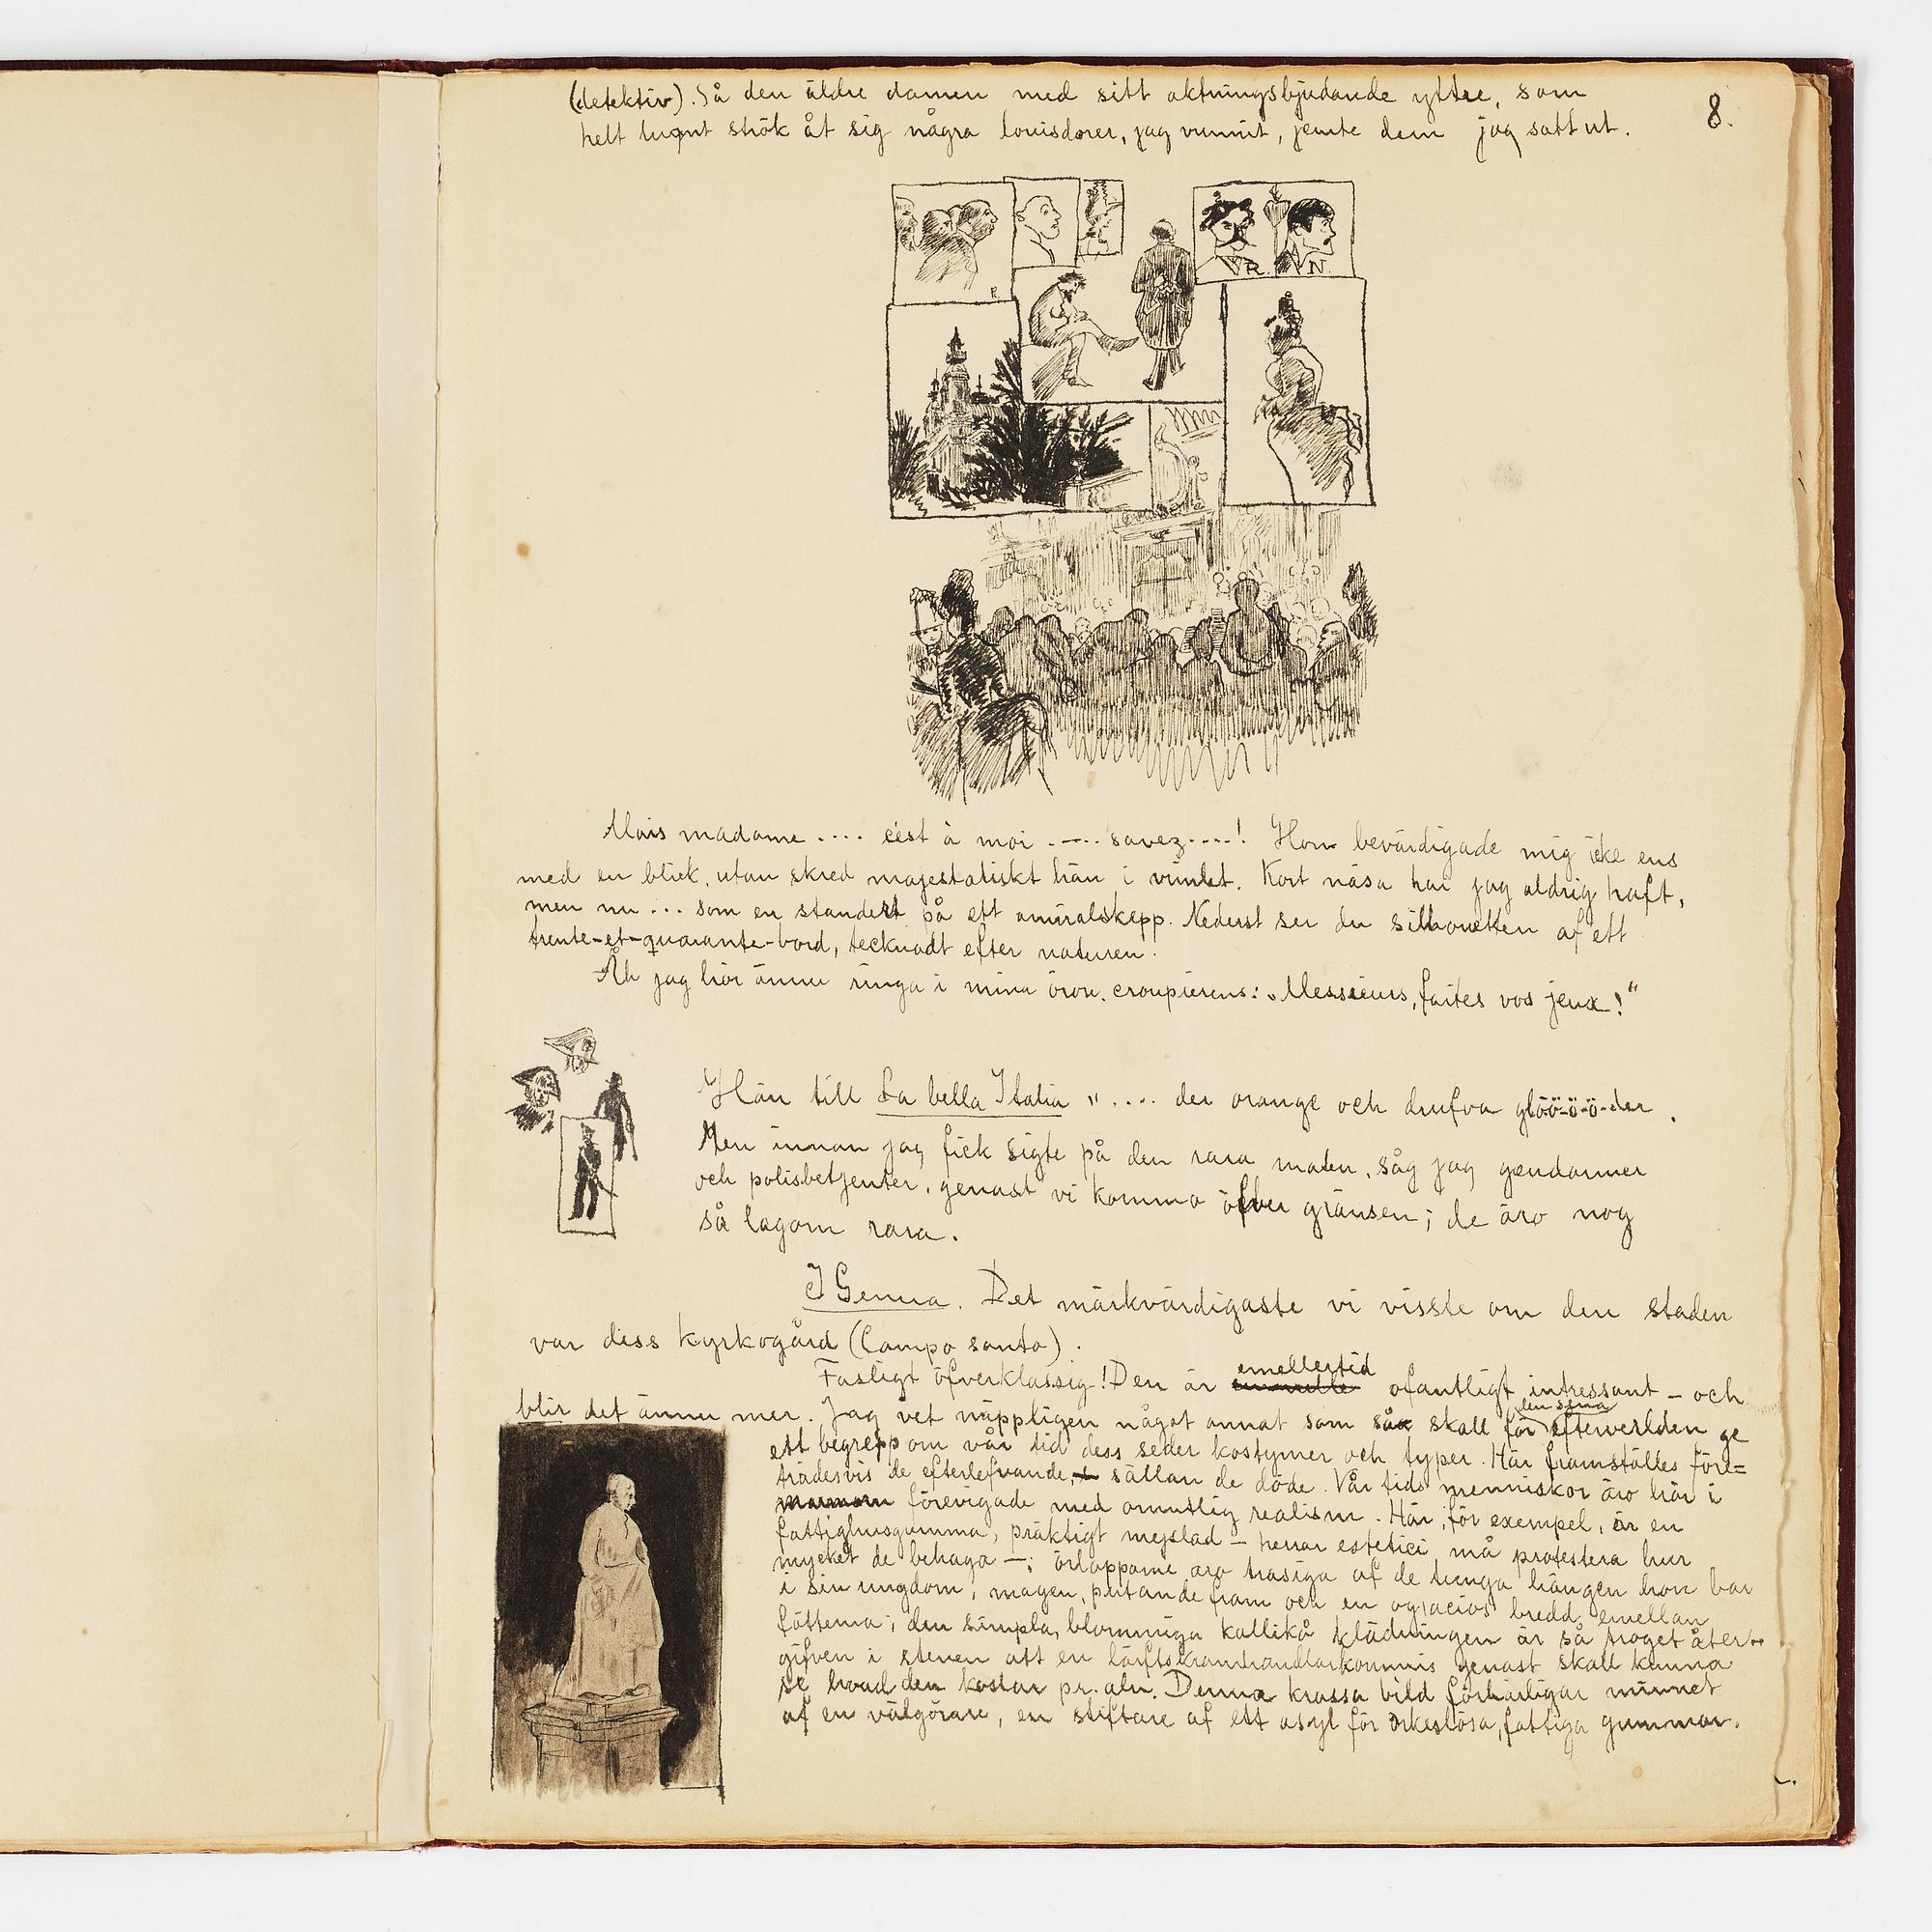 8.
(detektiv). Så den äldre damen med sitt aktningsbjudande yttre, som
helt lugnt strök åt sig några louisdorer, jag vunnit, jemte dem jag satt ut.
R. N.
Mais madame .... c'est à moi ..... savez ....! Hon bevärdigade mig icke ens
med en blick, utan skred majestätiskt hän i vimlet. Kort näsa har jag aldrig haft,
men nu ... som en standert på ett amiralskepp. Nederst ser du silhouetten af ett
trente-et-quarante-bord, tecknadt efter naturen.
Åh jag hör ännu ringa i mina öron, croupierens: „Messieurs, faites vos jeux!“
Hän till La bella Italia „.... der orange och drufva glöö-ö-ö-der.
Men innan jag fick sigte på den rara maten, såg jag gendarmer
och polisbetjenter, genast vi kommo öfver gränsen; de äro nog
så lagom rara.
I Genua. Det märkvärdigaste vi visste om den staden
var dess kyrkogård (Campo santo).
Fasligt öfverklassig! Den är emellertid ofantligt intressant – och
blir det ännu mer. Jag vet näppligen något annat som skall för den sena efterverlden ge
ett begrepp om vår tid dess seder kostymer och typer. Här framställes före=
trädesvis de efterlefvande, sällan de döde. Vår tids menniskor äro här i
marmorn förevigade med omutlig realism. Här, för exempel, är en
fattighusgumma, präktigt mejslad – herrar estetici må protestera hur
mycket de behaga –; örlapparne äro trasiga af de tunga hängen hon bar
i sin ungdom, magen putande fram och en ograciös bredd emellan
fötterna; den simpla, blommiga kallikå klädningen är så troget åter-
gifven i stenen att en lärftskramhandlarkommis genast skall kunna
se hvad den kostar pr. aln. Denna krassa bild förhärligar minnet
af en välgörare, en stiftare af ett asyl för orkeslösa, fattiga gummor.